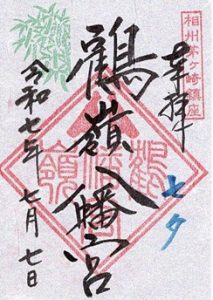 相州茅ヶ崎鎮座
奉拝
七夕
鶴嶺八幡宮
令和七年 七月 七日